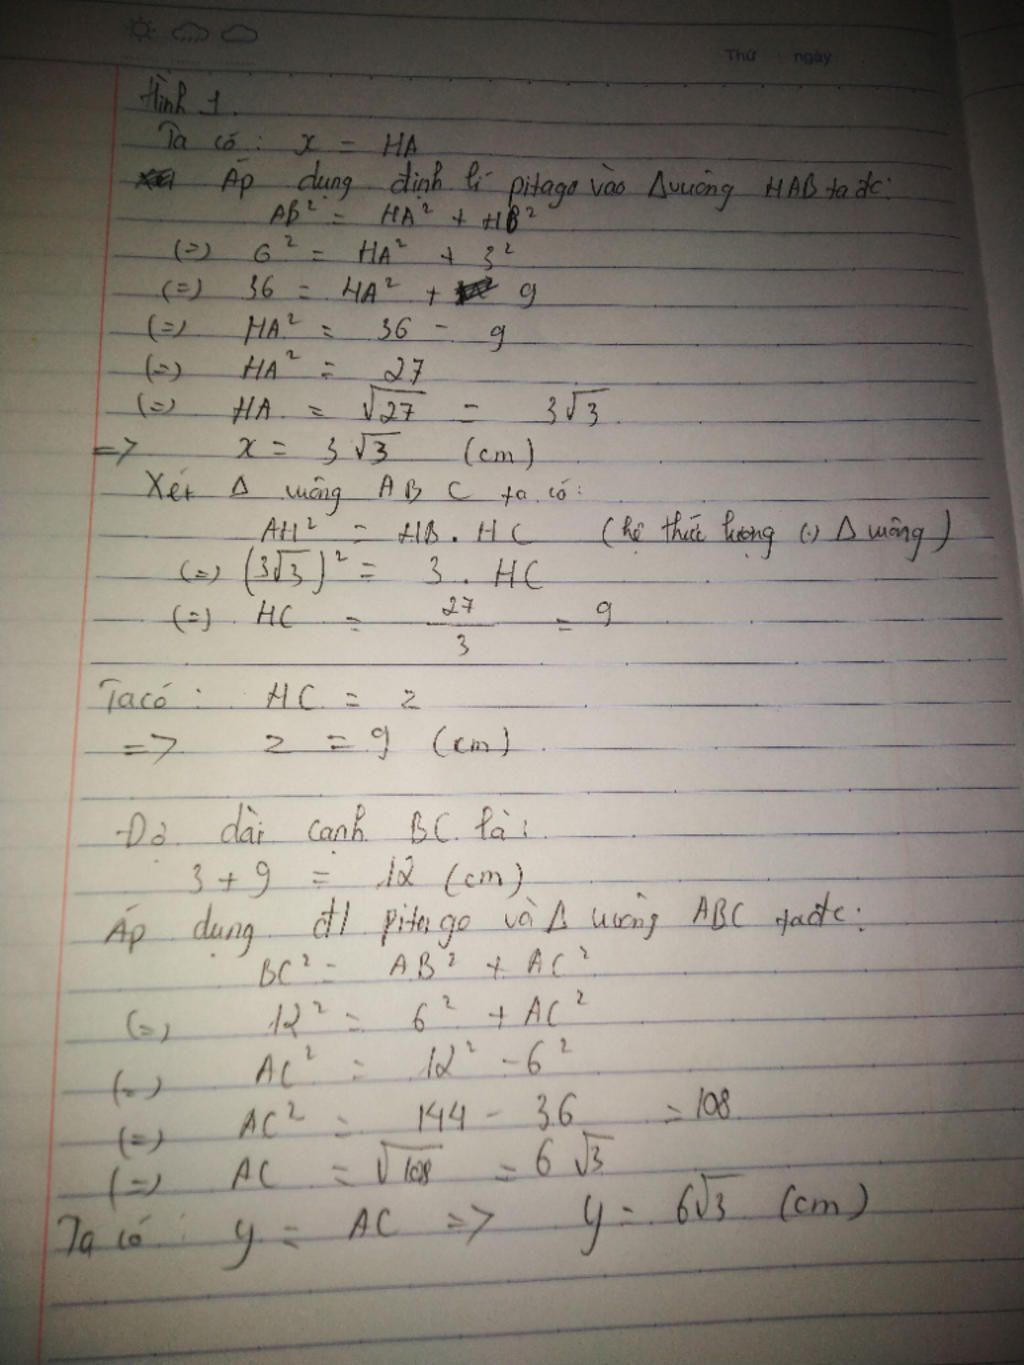 Thứ ngày
Hình 1.
Ta có: x = HA
Áp dụng định lí pitago vào Δ vuông HAB ta đc:
AB² = HA² + HB²
(=) 6² = HA² + 3²
(=) 36 = HA² + 9
(=) HA² = 36 - 9
(=) HA² = 27
(=) HA = √27 = 3√3
=> x = 3√3 (cm)
Xét Δ vuông ABC ta có:
AH² = HB . HC (hệ thức lượng (.) Δ vuông)
(=) (3√3)² = 3 . HC
(=) HC = 27/3 = 9
Ta có: HC = z
=> z = 9 (cm)
Độ dài cạnh BC là:
3 + 9 = 12 (cm)
Áp dụng đl pitago và Δ vuông ABC ta đc:
BC² = AB² + AC²
(=) 12² = 6² + AC²
(=) AC² = 12² - 6²
(=) AC² = 144 - 36 = 108
(=) AC = √108 = 6√3
Ta có: y = AC => y = 6√3 (cm)